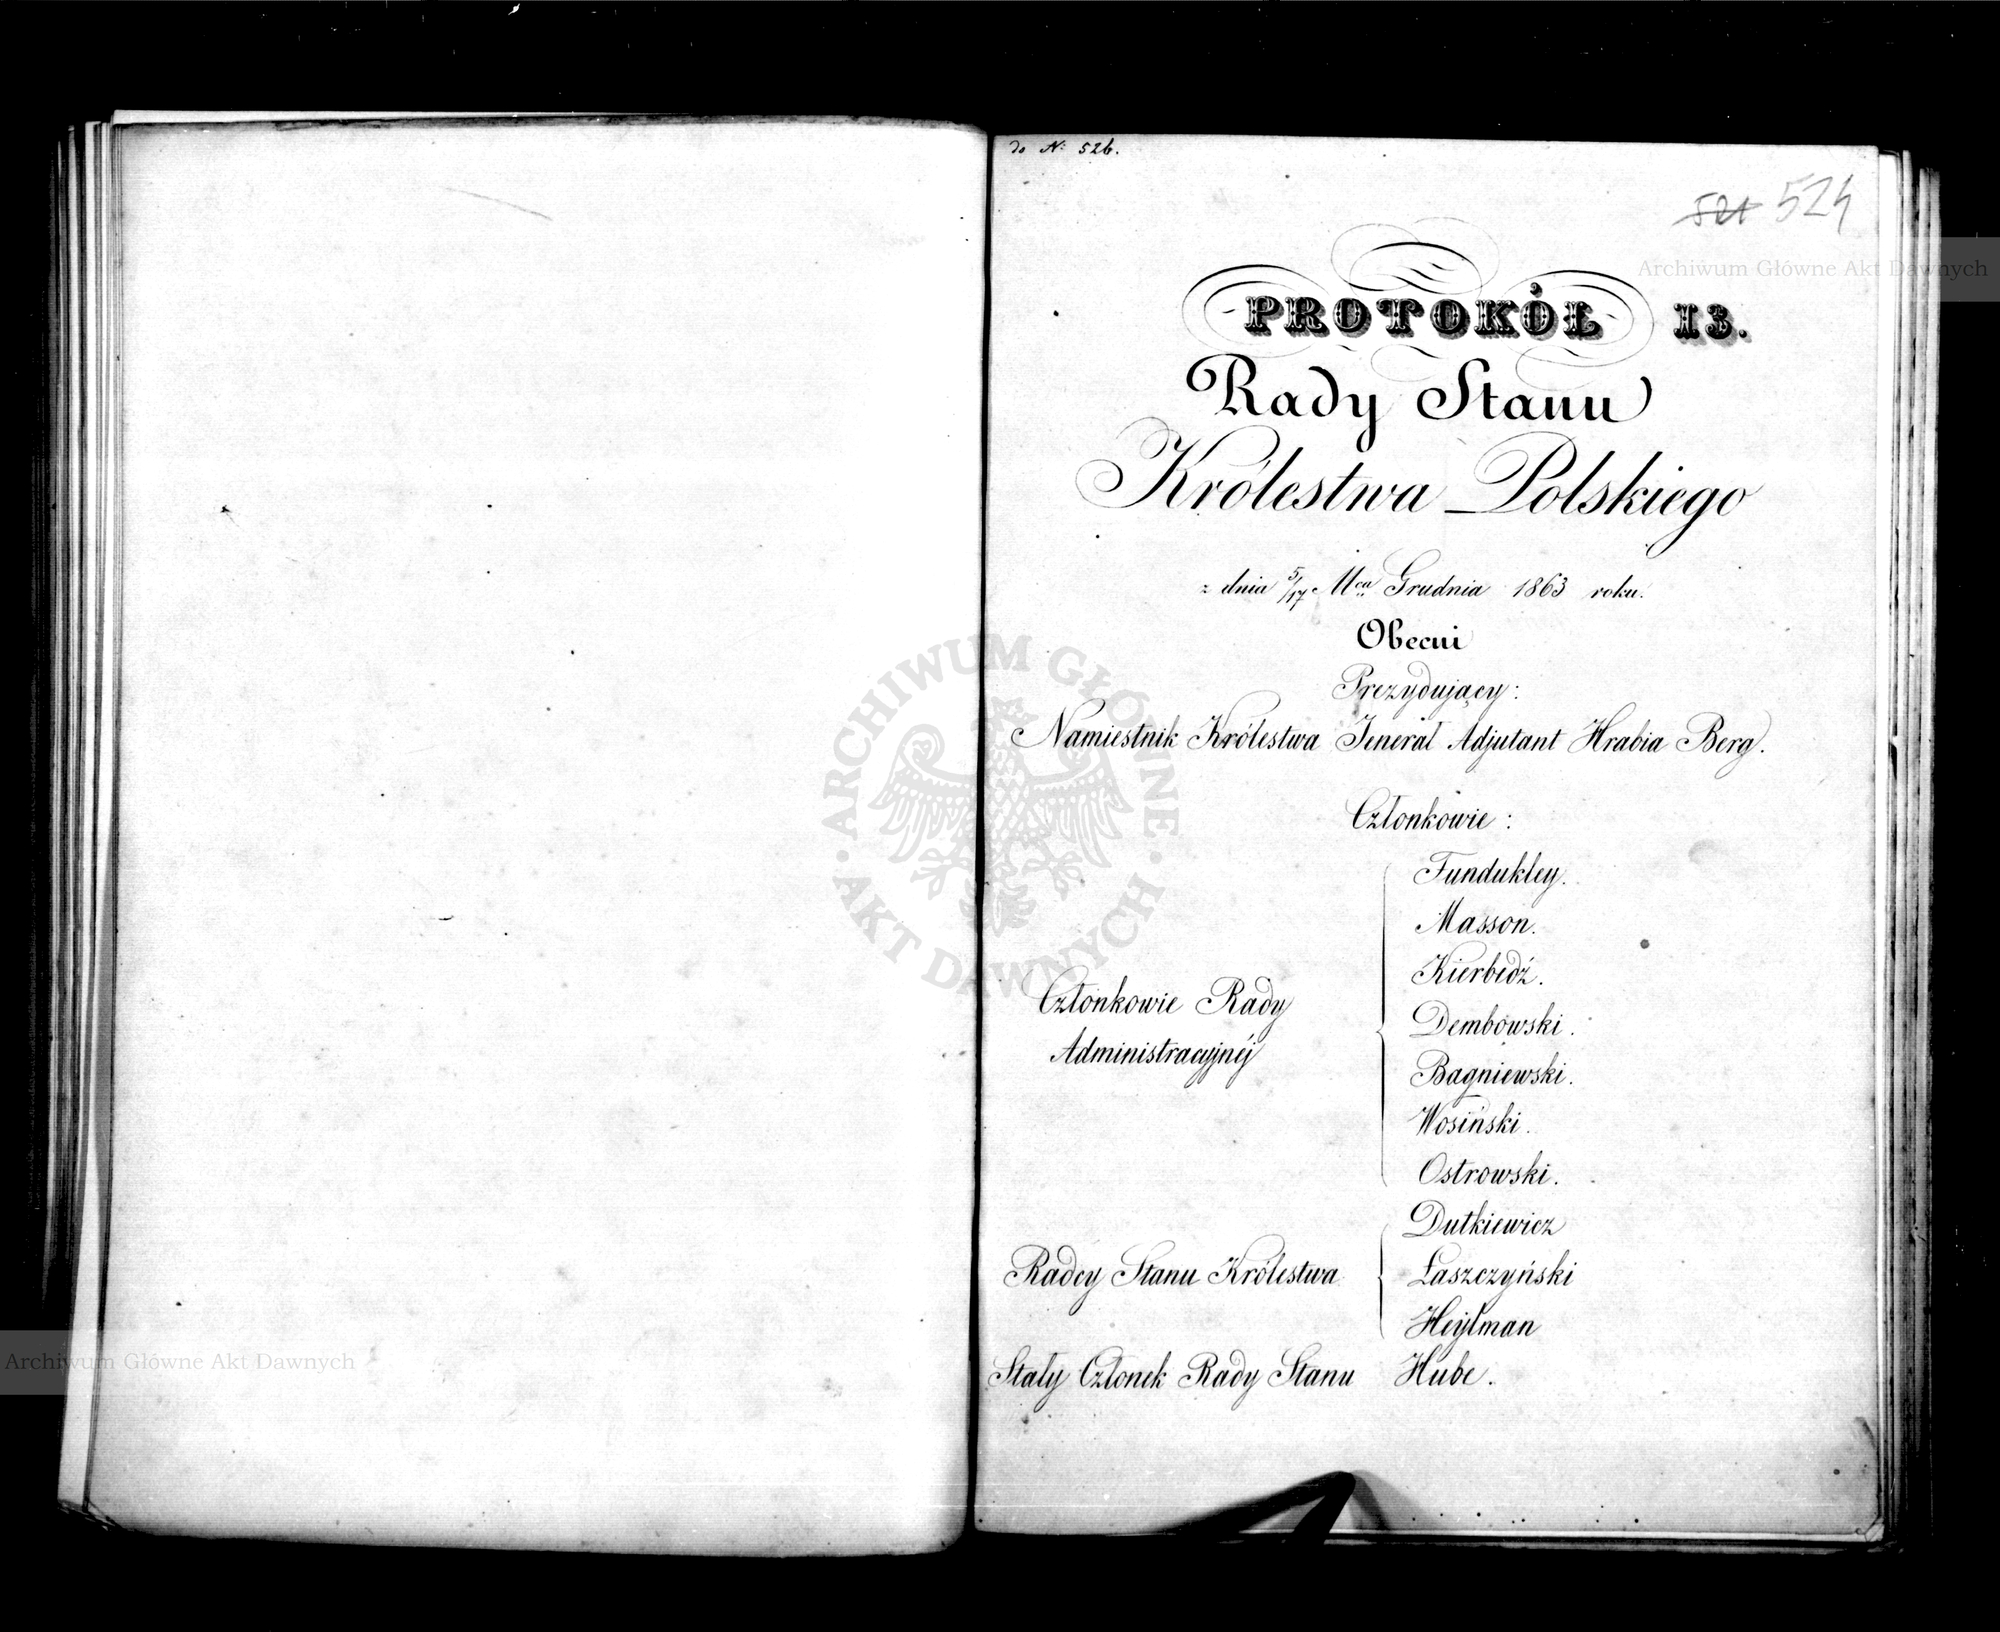 do N: 526.
521 524
PROTOKÓŁ 13.
Rady Stanu
Królestwa Polskiego
z dnia 5/17 Mca Grudnia 1863 roku.
Obecni
Prezydujący:
Namiestnik Królestwa Jenerał Adjutant Hrabia Berg.
Członkowie:
Fundukley.
Masson.
Kierbedź.
Członkowie Rady
Administracyjnéj
Dembowski.
Bagniewski.
Wosiński.
Ostrowski.
Dutkiewicz
Radcy Stanu Królestwa Łaszczyński
Heylman
Stały Członek Rady Stanu Hube.
Archiwum Główne Akt Dawnych
ARCHIWUM GŁÓWNE AKT DAWNYCH
Archiwum Główne Akt Dawnych